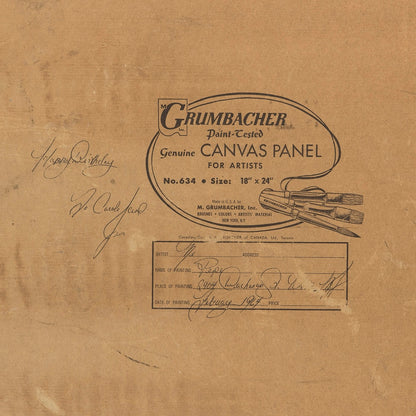 M.
GRUMBACHER
INC.
Paint-Tested
Genuine CANVAS PANEL
FOR ARTISTS
No. 634 • Size: 18" x 24"
Made in U.S.A. by
M. GRUMBACHER, Inc.
BRUSHES • COLORS • ARTISTS MATERIAL
NEW YORK, N.Y.
OF CANADA, Ltd., Toronto
Happy Birthday
To Carole
ARTIST ADDRESS
NAME OF PAINTING
PLACE OF PAINTING
DATE OF PAINTING February PRICE